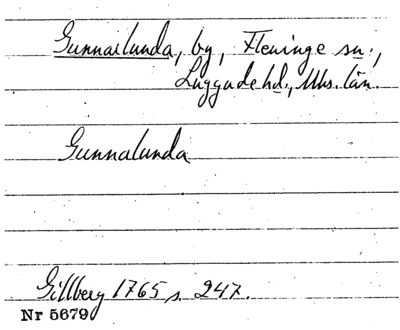 Gunnarlunda, by, Fleninge sn.,
Luggude hd., Mhs. län.
Gunnalunda
Gillberg 1765 s. 247.
Nr 5679